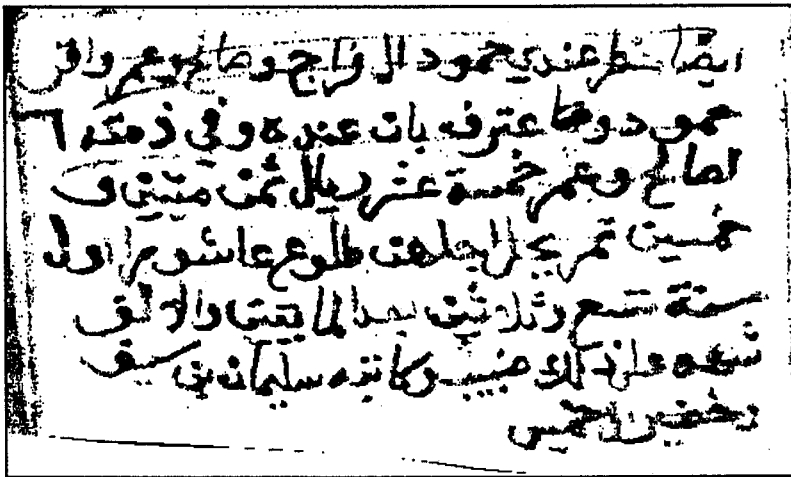 ايضا حضر عندي حمود ال فراج وصالح وعمر واقر
حمود واعترف بان عنده وفي ذمته
لصالح وعمر خمسة عشر ريال ثمن ميتين و
خمسين تمر يحل اجلهن طلوع عاشور اول
سنة تسع وثلاثين بعد المايتين والالف
شهد على ذلك وكاتبه سليمان بن سيف